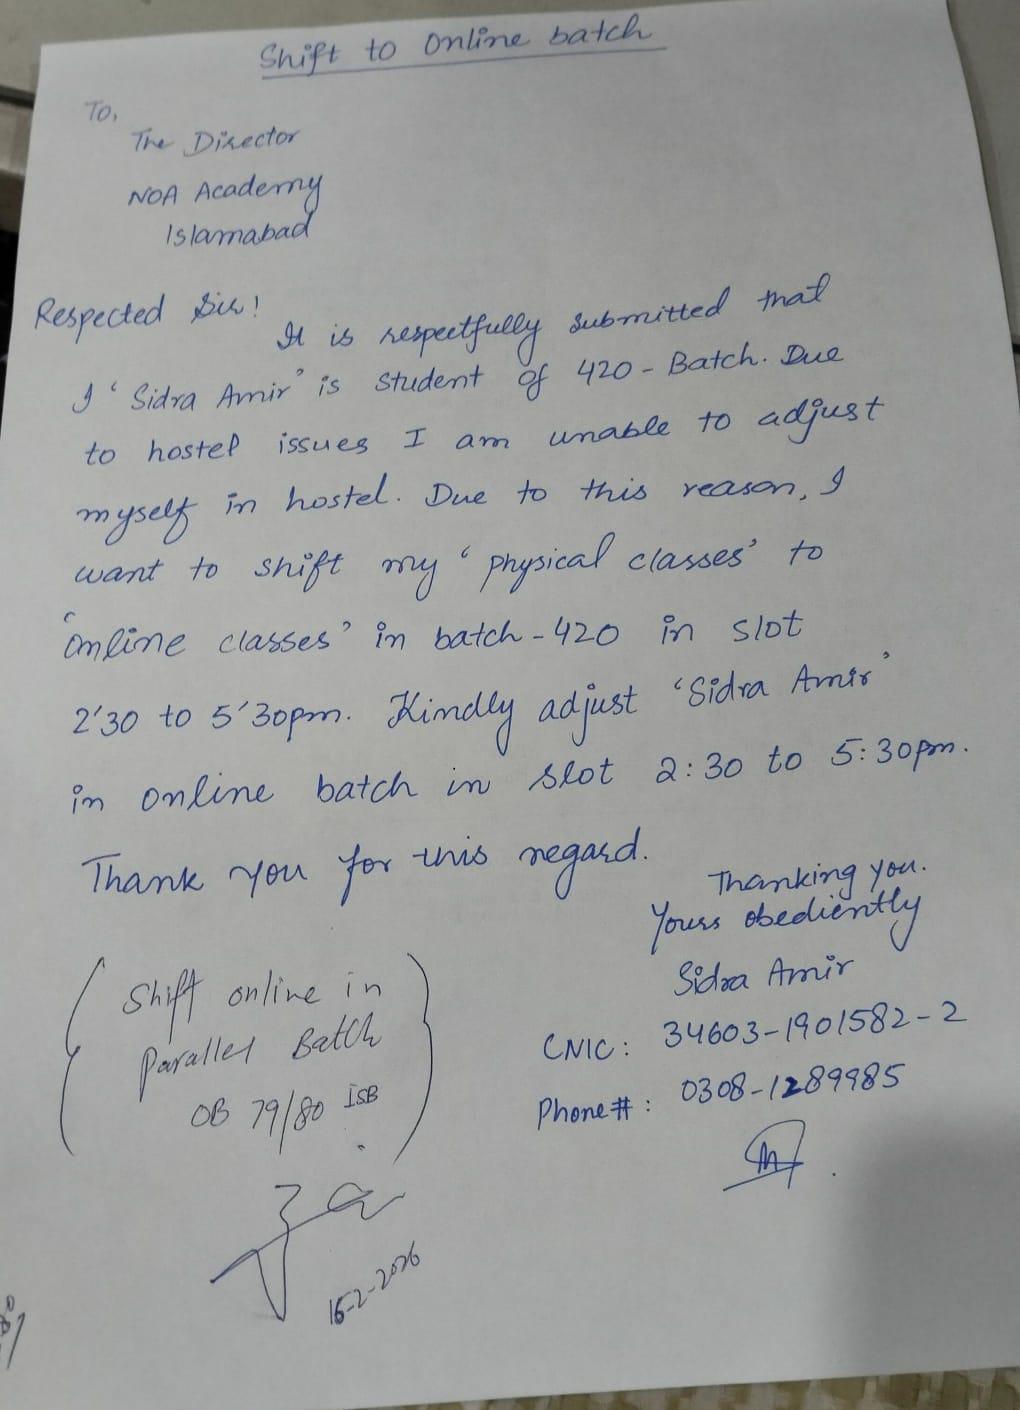 Shift to Online batch
To,
The Director
NOA Academy
Islamabad
Respected Sir!
It is respectfully submitted that
I ‘Sidra Amir’ is student of 420-Batch. Due
to hostel issues I am unable to adjust
myself in hostel. Due to this reason, I
want to shift my ‘physical classes’ to
‘online classes’ in batch-420 in slot
2'30 to 5'30pm. Kindly adjust ‘Sidra Amir’
in online batch in slot 2:30 to 5:30pm.
Thank you for this regard.
Thanking you.
Yours obediently
Sidra Amir
CNIC: 34603-1901582-2
Phone #: 0308-1289985
Shift online in
Parallel Batch
OB 79/80 ISB
16-2-2026